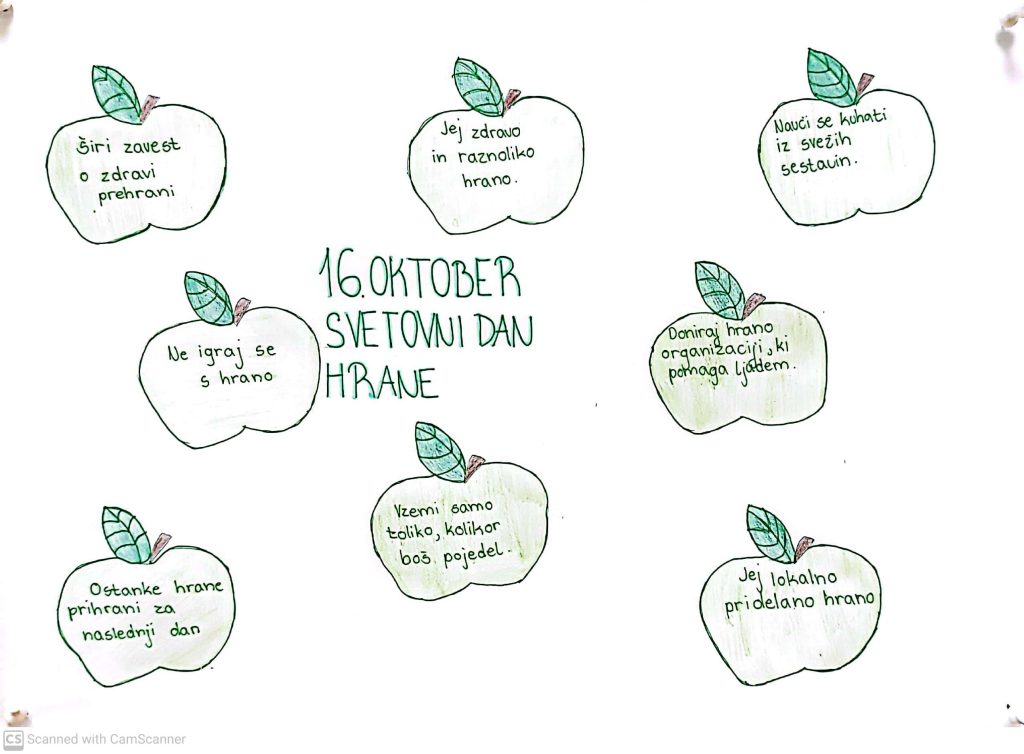 Širi zavest
o zdravi
prehrani
Jej zdravo
in raznoliko
hrano.
Nauči se kuhati
iz svežih
sestavin.
16. OKTOBER
SVETOVNI DAN
HRANE
Ne igraj se
s hrano
Doniraj hrano
organizaciji, ki
pomaga ljudem.
Vzemi samo
toliko, kolikor
boš pojedel.
Ostanke hrane
prihrani za
naslednji dan
Jej lokalno
pridelano hrano
CS Scanned with CamScanner